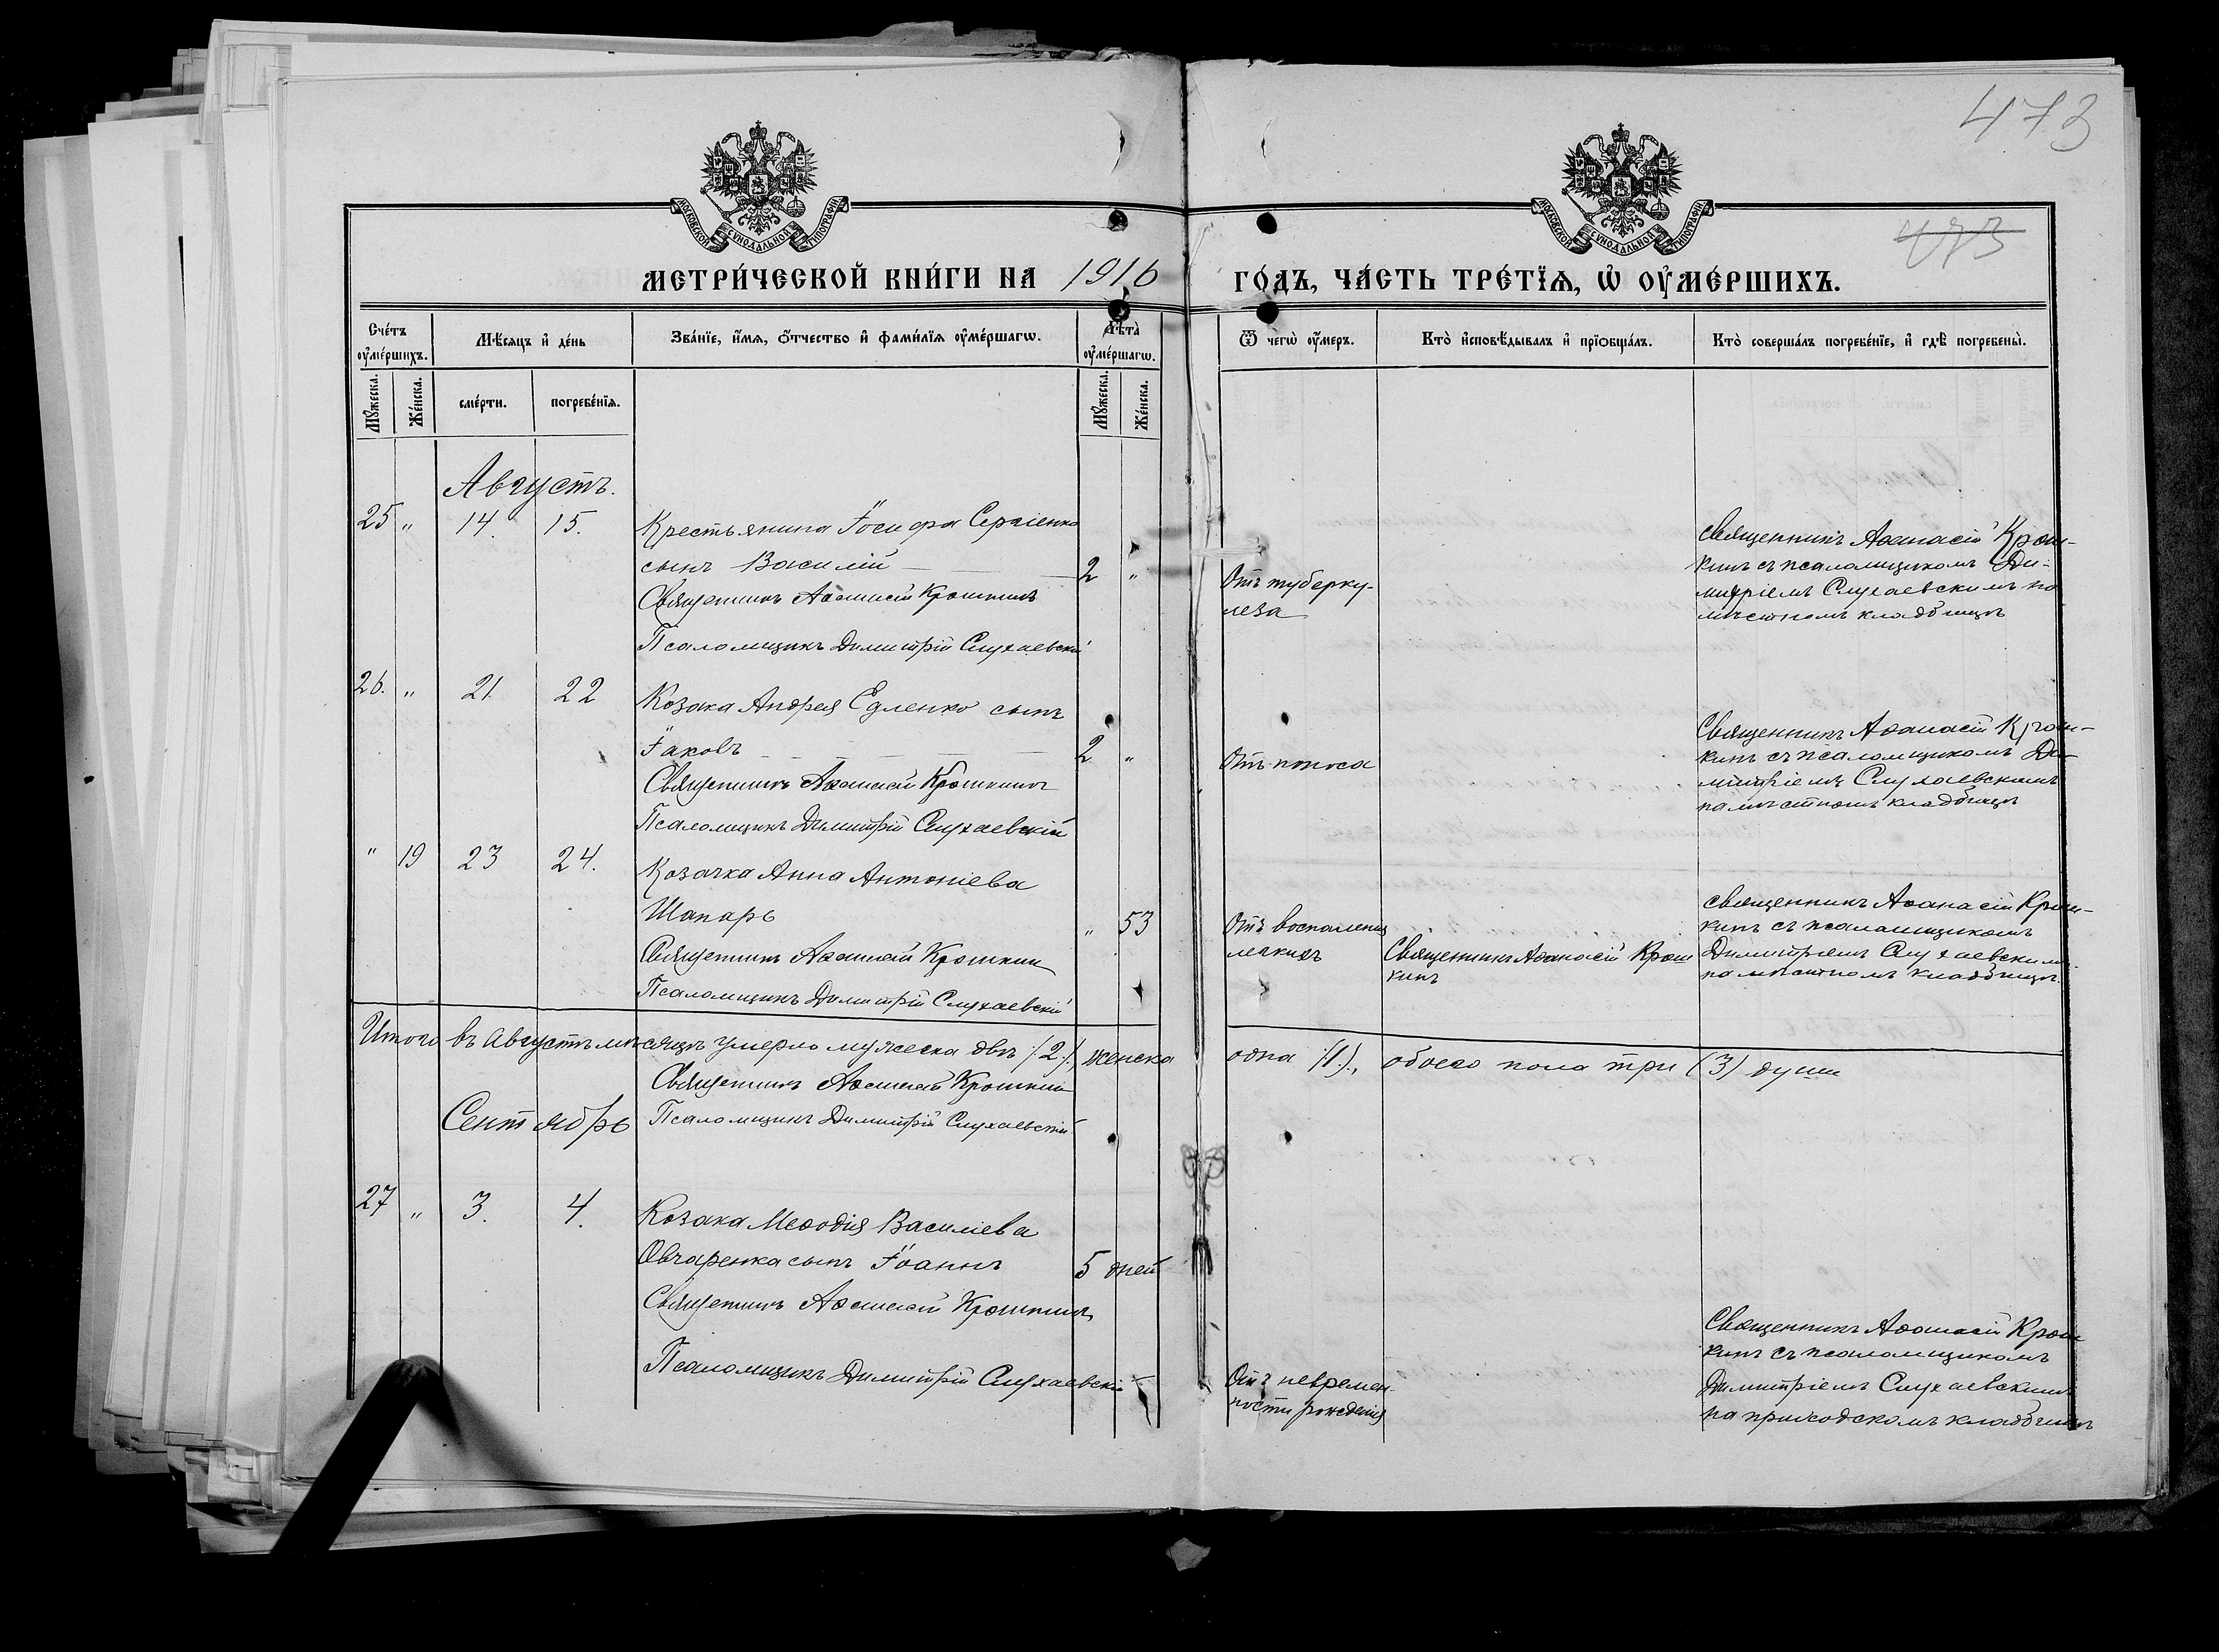 473
473
МОСКОВСКОЙ СѴНОДАЛЬНОЙ ТИПОГРАФІИ
МОСКОВСКОЙ СѴНОДАЛЬНОЙ ТИПОГРАФІИ
МЕТРИ́ЧЕСКОЙ КНИ́ГИ НА 1916 ГО́ДЪ, ЧА́СТЬ ТРЕ́ТЇѦ, Ѡ҆ ОУ҆МЕ́РШИХЪ.
Сче́тъ оу҆ме́ршихъ.
Мѣ́сяцъ и҆ де́нь
Зва́нїе, и҆́мѧ, ѻ҆́тчество и҆ фами́лїѧ оу҆ме́ршагѡ.
Лѣ́та̀ оу҆ме́ршагѡ.
Ѿ чегѡ̀ оу҆́меръ.
Кто̀ и҆сповѣ́дывалъ и҆ прїѡбща́лъ.
Кто̀ соверша́лъ погребе́нїе, и҆ гдѣ̀ погребены̀.
Мꙋ́жеска.
Же́нска.
сме́рти.
погребе́нїѧ.
Мꙋ́жеска.
Же́нска.
Августъ.
25 " 14. 15. Крестьянина Іосифа Сергіенко
сынъ Василій 2 "
Священникъ Аѳанасій Крошкинъ
Псаломщикъ Димитрій Слухаевскій
Отъ туберку-
леза
Священникъ Аѳанасій Крош-
кинъ съ псаломщикомъ Ди-
митріемъ Слухаевскимъ на
мѣстномъ кладбищѣ
26. " 21 22 Козака Андрея Едленко сынъ
Іаковъ 2 "
Священникъ Аѳанасій Крошкинъ
Псаломщикъ Димитрій Слухаевскій
Отъ поноса
Священникъ Аѳанасій Крош-
кинъ съ псаломщикомъ Ди-
митріемъ Слухаевскимъ
на мѣстномъ кладбищѣ
" 19 23 24. Козачка Анна Антоніева
Шапарь " 53
Священникъ Аѳанасій Крошкин
Псаломщикъ Димитрій Слухаевскій
Отъ воспаленія
легкихъ
Священникъ Аѳанасій Крош
кинъ
Священникъ Аѳанасій Крош-
кинъ съ псаломщикомъ
Димитріемъ Слухаевскимъ
на мѣстномъ кладбищѣ.
Итого въ Августѣ мѣсяцѣ умерло мужеска двѣ /2./, женска одна /1./, обоего пола три (3) души
Священникъ Аѳанасій Крошкин
Псаломщикъ Димитрій Слухаевскій
Сентябрь
27 " 3. 4. Козака Меѳодія Василіева
Овчаренка сынъ Іоаннъ 5 дней
Священникъ Аѳанасій Крошкинъ
Псаломщикъ Димитрій Слухаевскій
Отъ неврємен-
ности рожденія
Священникъ Аѳанасій Крош
кинъ съ псаломщикомъ
Димитріемъ Слухаевскимъ
на приходскомъ кладбищѣ